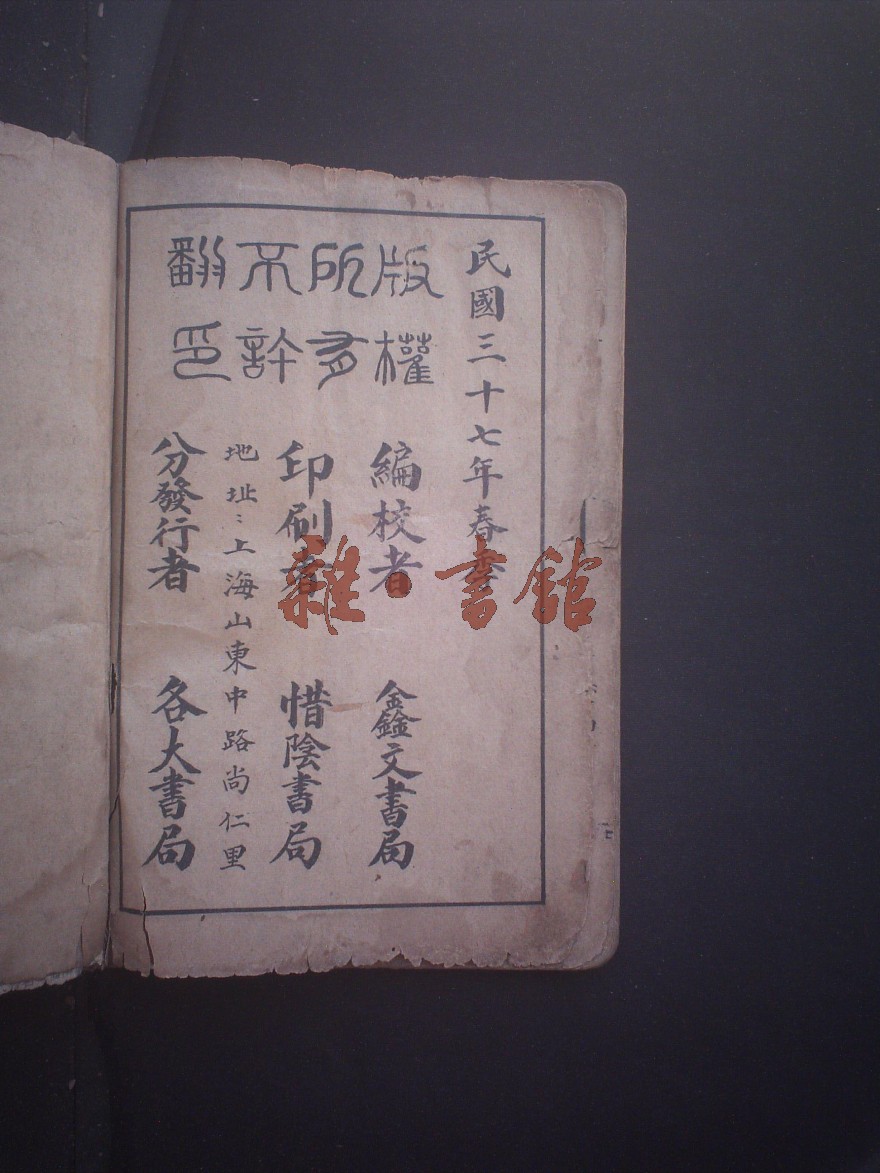 民國三十七年春季
版權
所有
不許
翻印
編校者 鑫文書局
印刷者 惜陰書局
地址：上海山東中路尚仁里
分發行者 各大書局
雜·書館